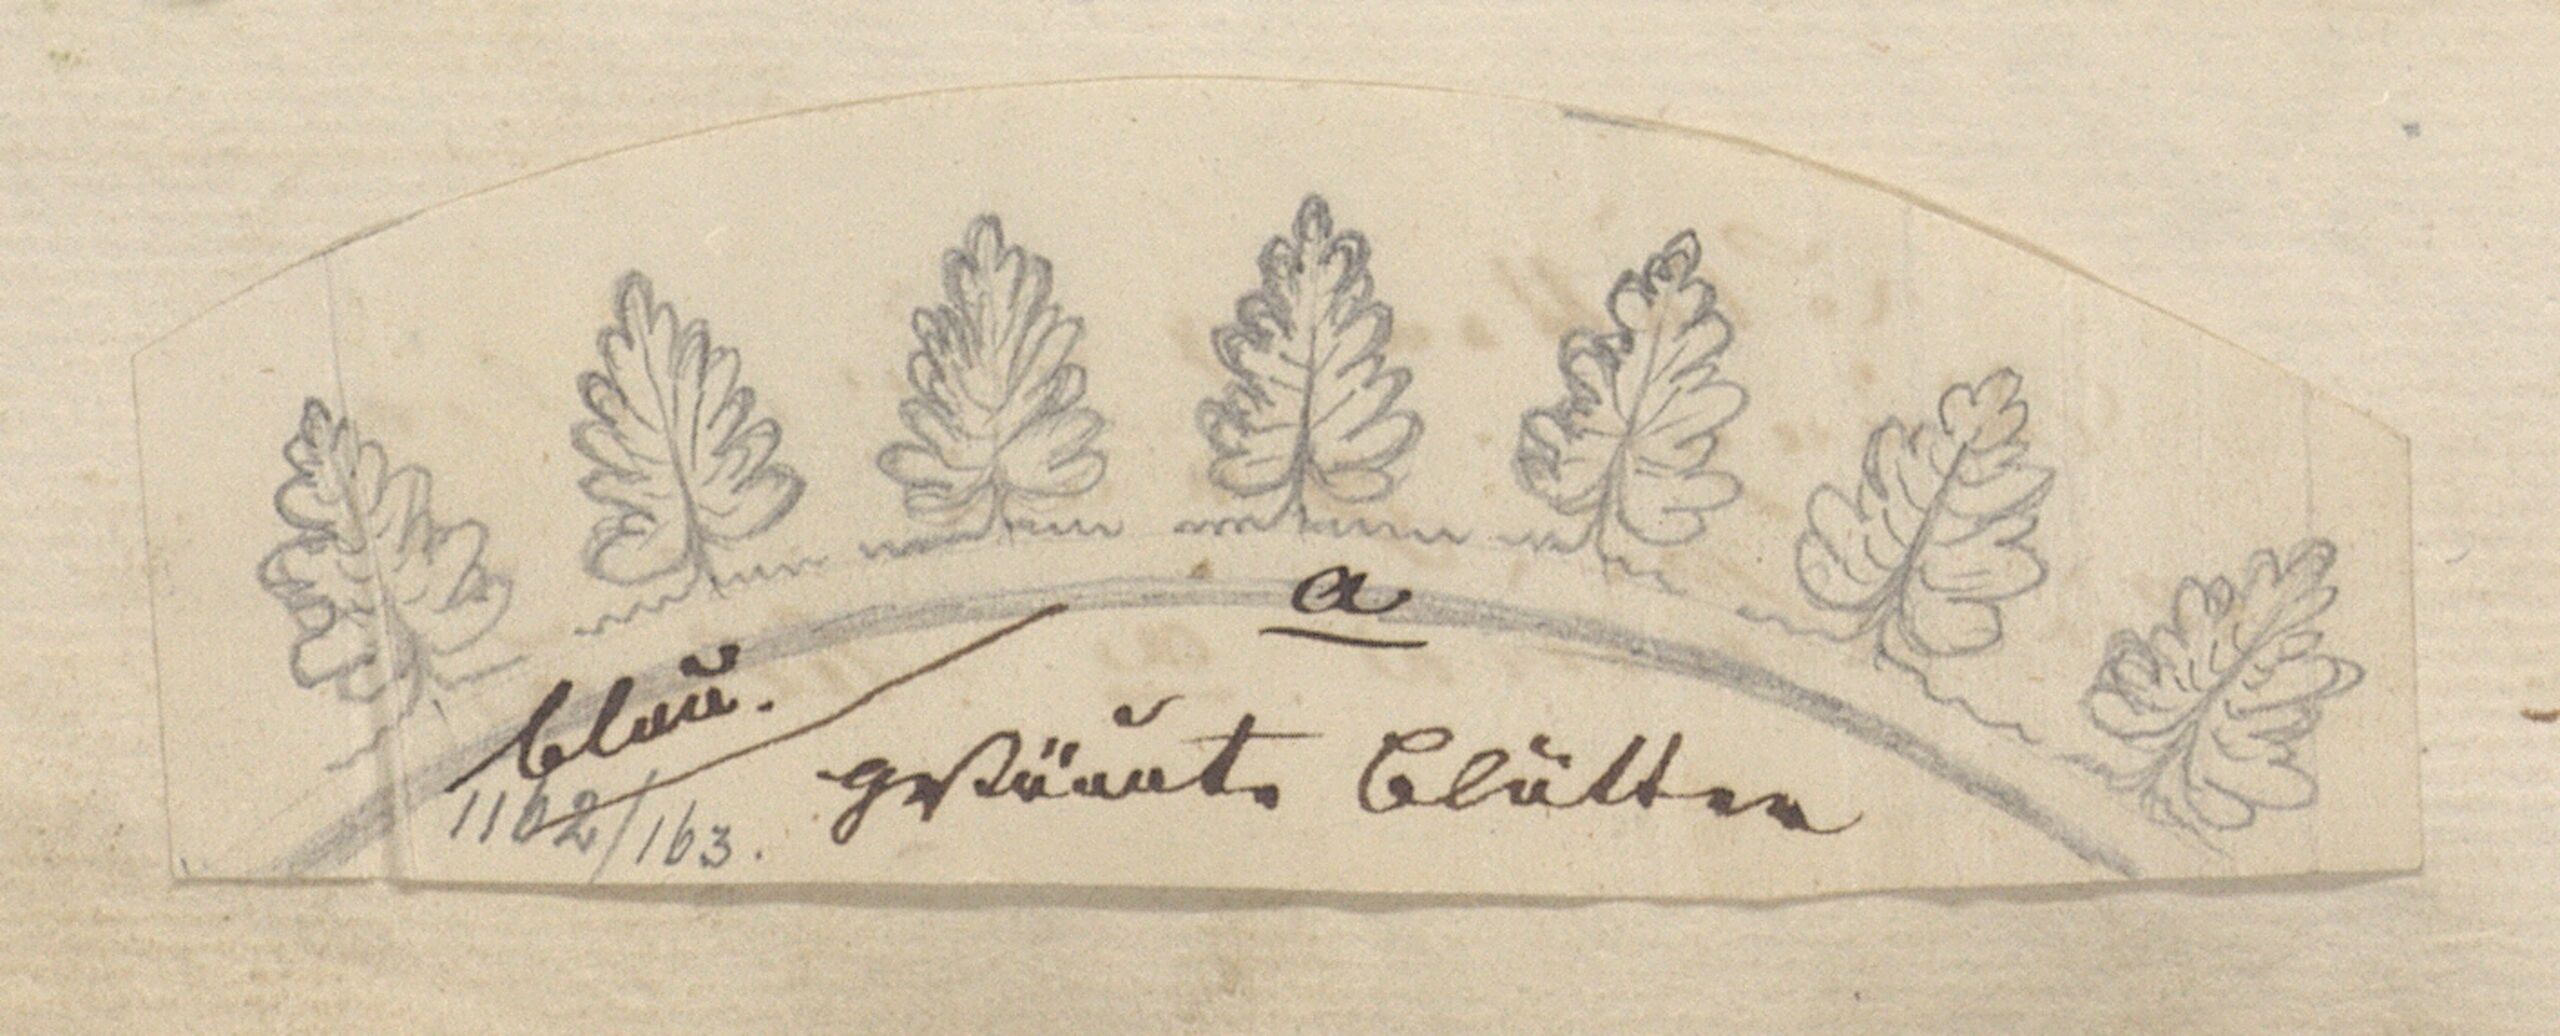 a
blau.
gesäumte Blätter
1162/163.